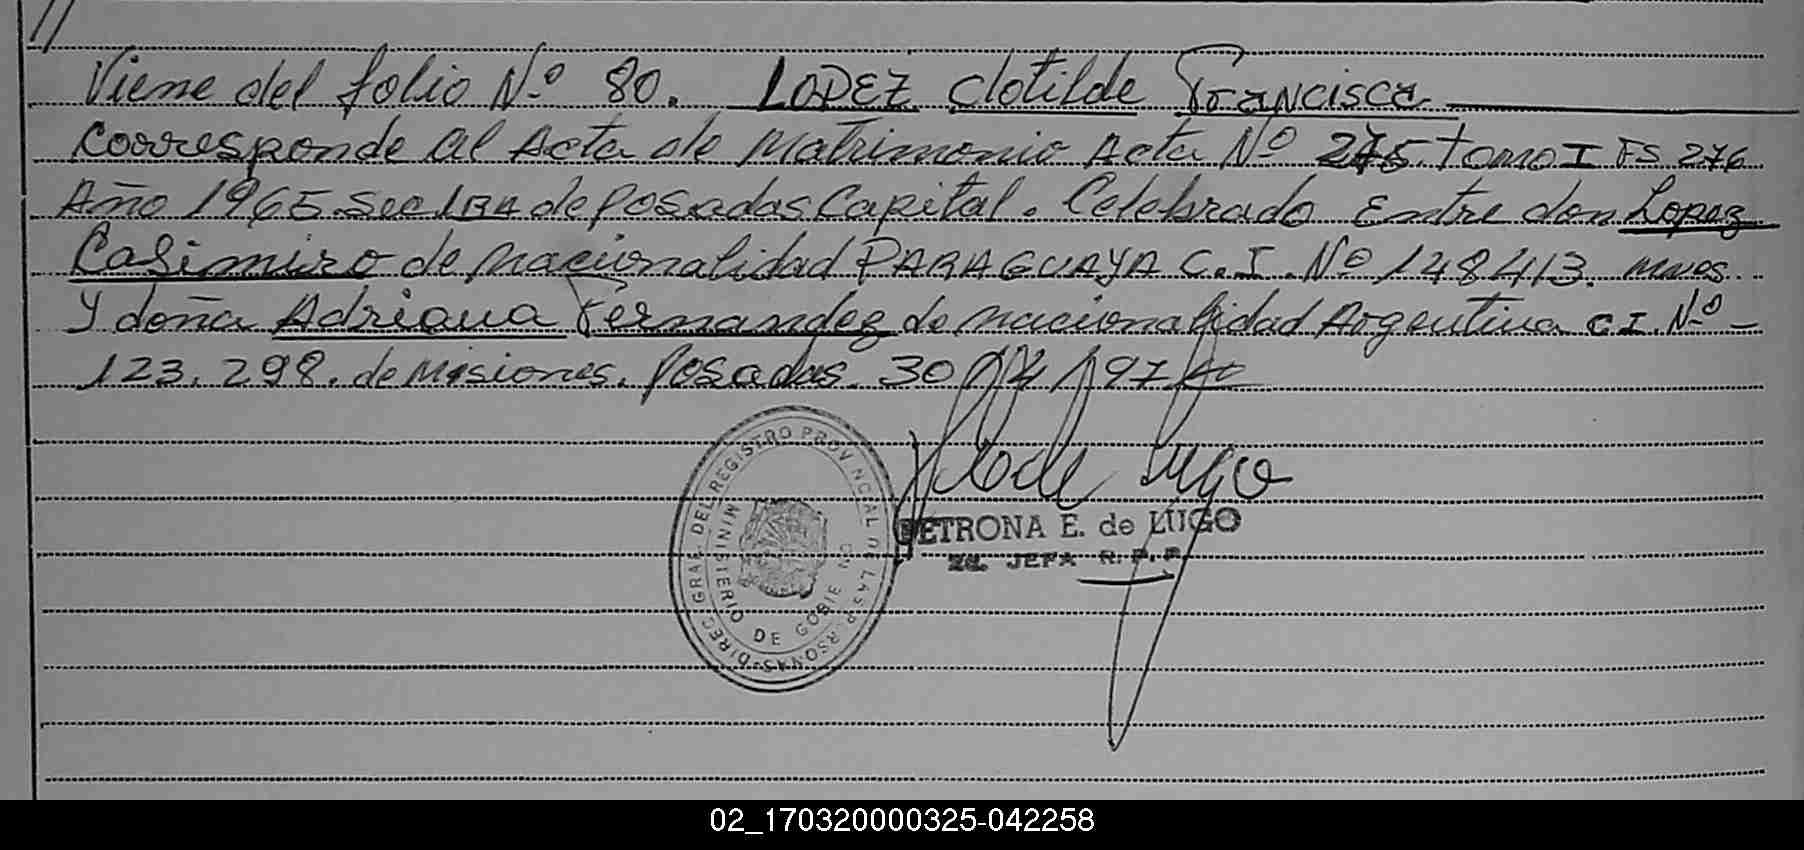 //
Viene del folio Nº 80. LOPEZ Clotilde Francisca
Corresponde al Acta de Matrimonio Acta Nº 275. tomo I FS 276
Año 1965. Sec 1RA de Posadas Capital. Celebrado Entre don Lopez
Casimiro de nacionalidad PARAGUAYA C.I. Nº 148413. Mnes.
Y doña Adriana Fernandez de nacionalidad Argentina C I. Nº-
123.298. de Misiones. Posadas. 30
de Lugo
PETRONA E. de LUGO
JEFA R. P. P.
DIREC GRAL DEL REGISTRO PROVINCIAL DE LAS PERSONAS
MINISTERIO DE GOBIE
02_170320000325-042258